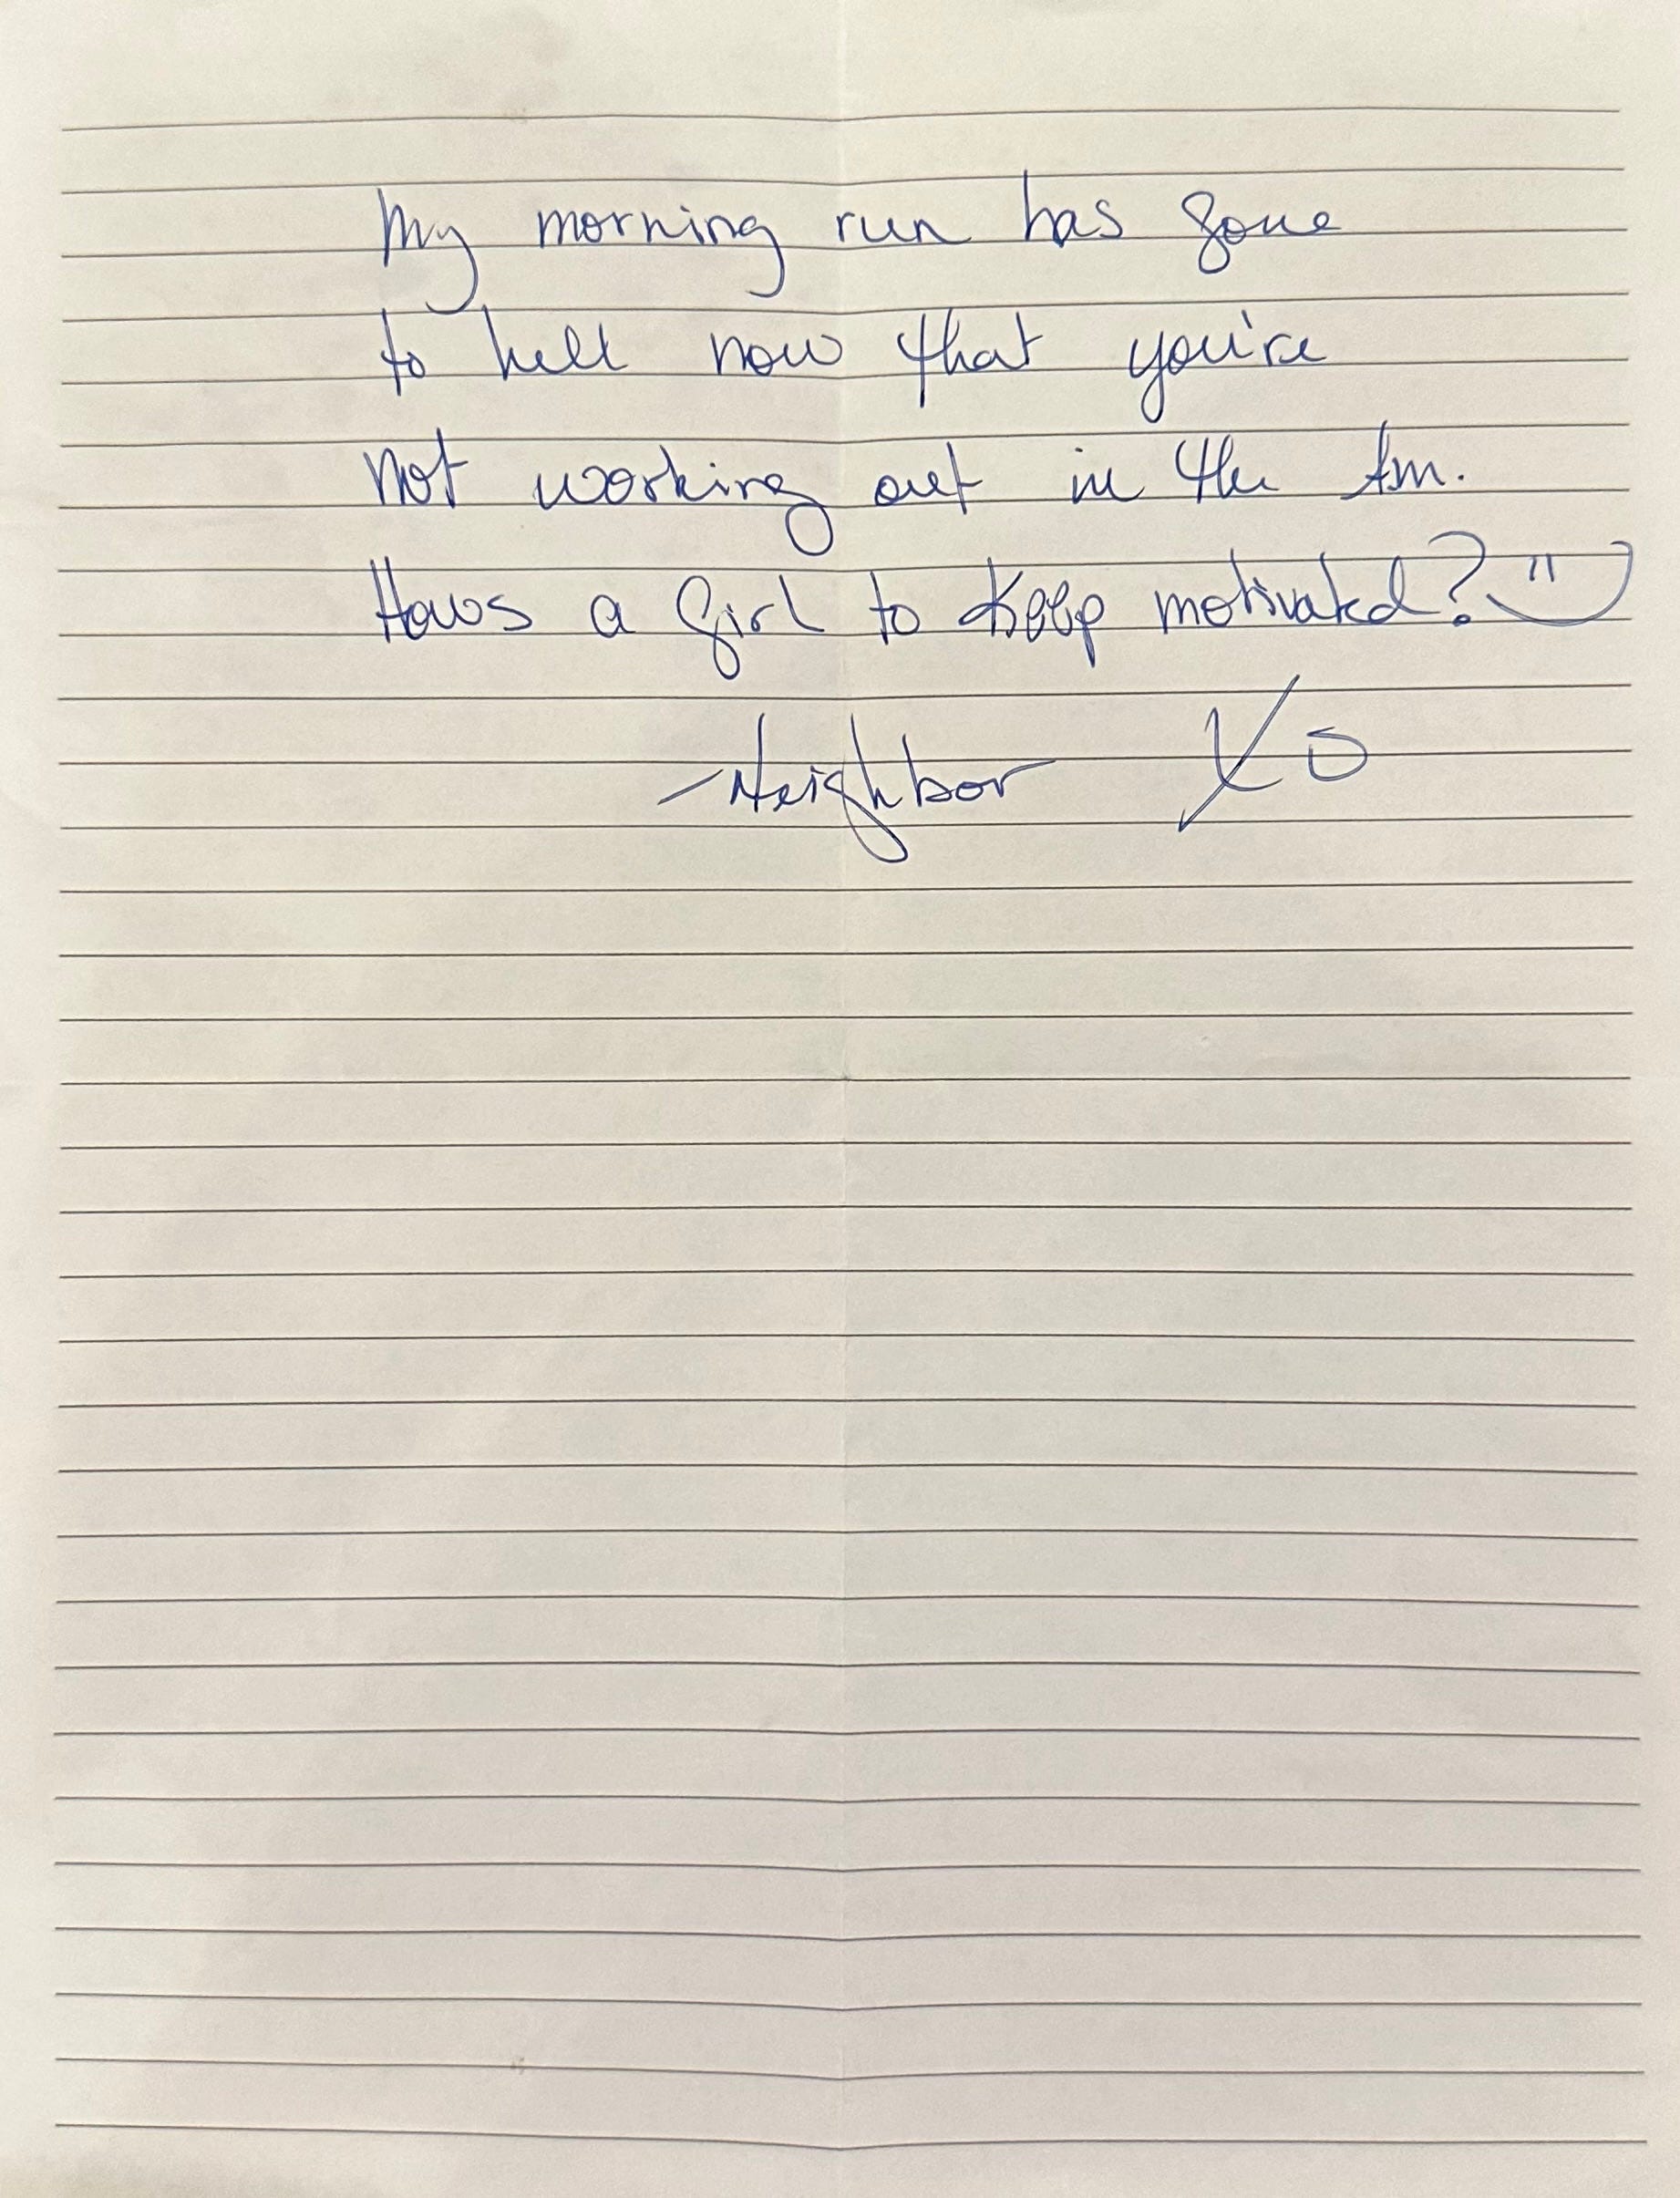 My morning run has gone
to hell now that you're
not working out in the Am.
Hows a girl to keep motivated? :)
-Neighbor XO